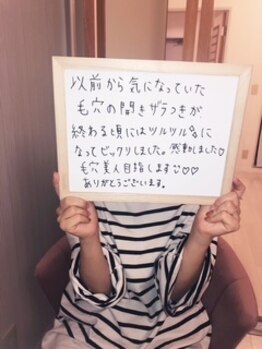 以前から気になっていた
毛穴の開きザラつきが
終わる頃にはツルツルに
なってビックリしました。感動しました♡
毛穴美人目指します☺♡♡
ありがとうございます。